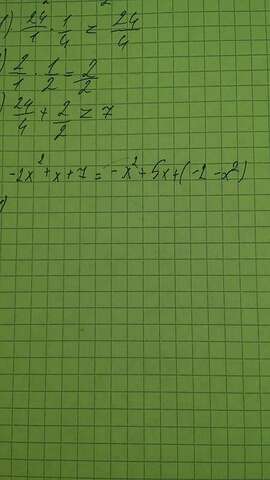 1) 24/1 · 1/4 = 24/4
) 2/1 · 1/2 = 2/2
) 24/4 + 2/2 = 7
-2x² + x + 7 = -x² + 5x + (-2 - x²)
)